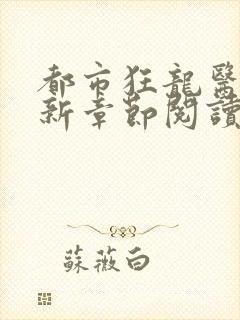 都市狂龍醫
新章節閱讀
蘇薇白